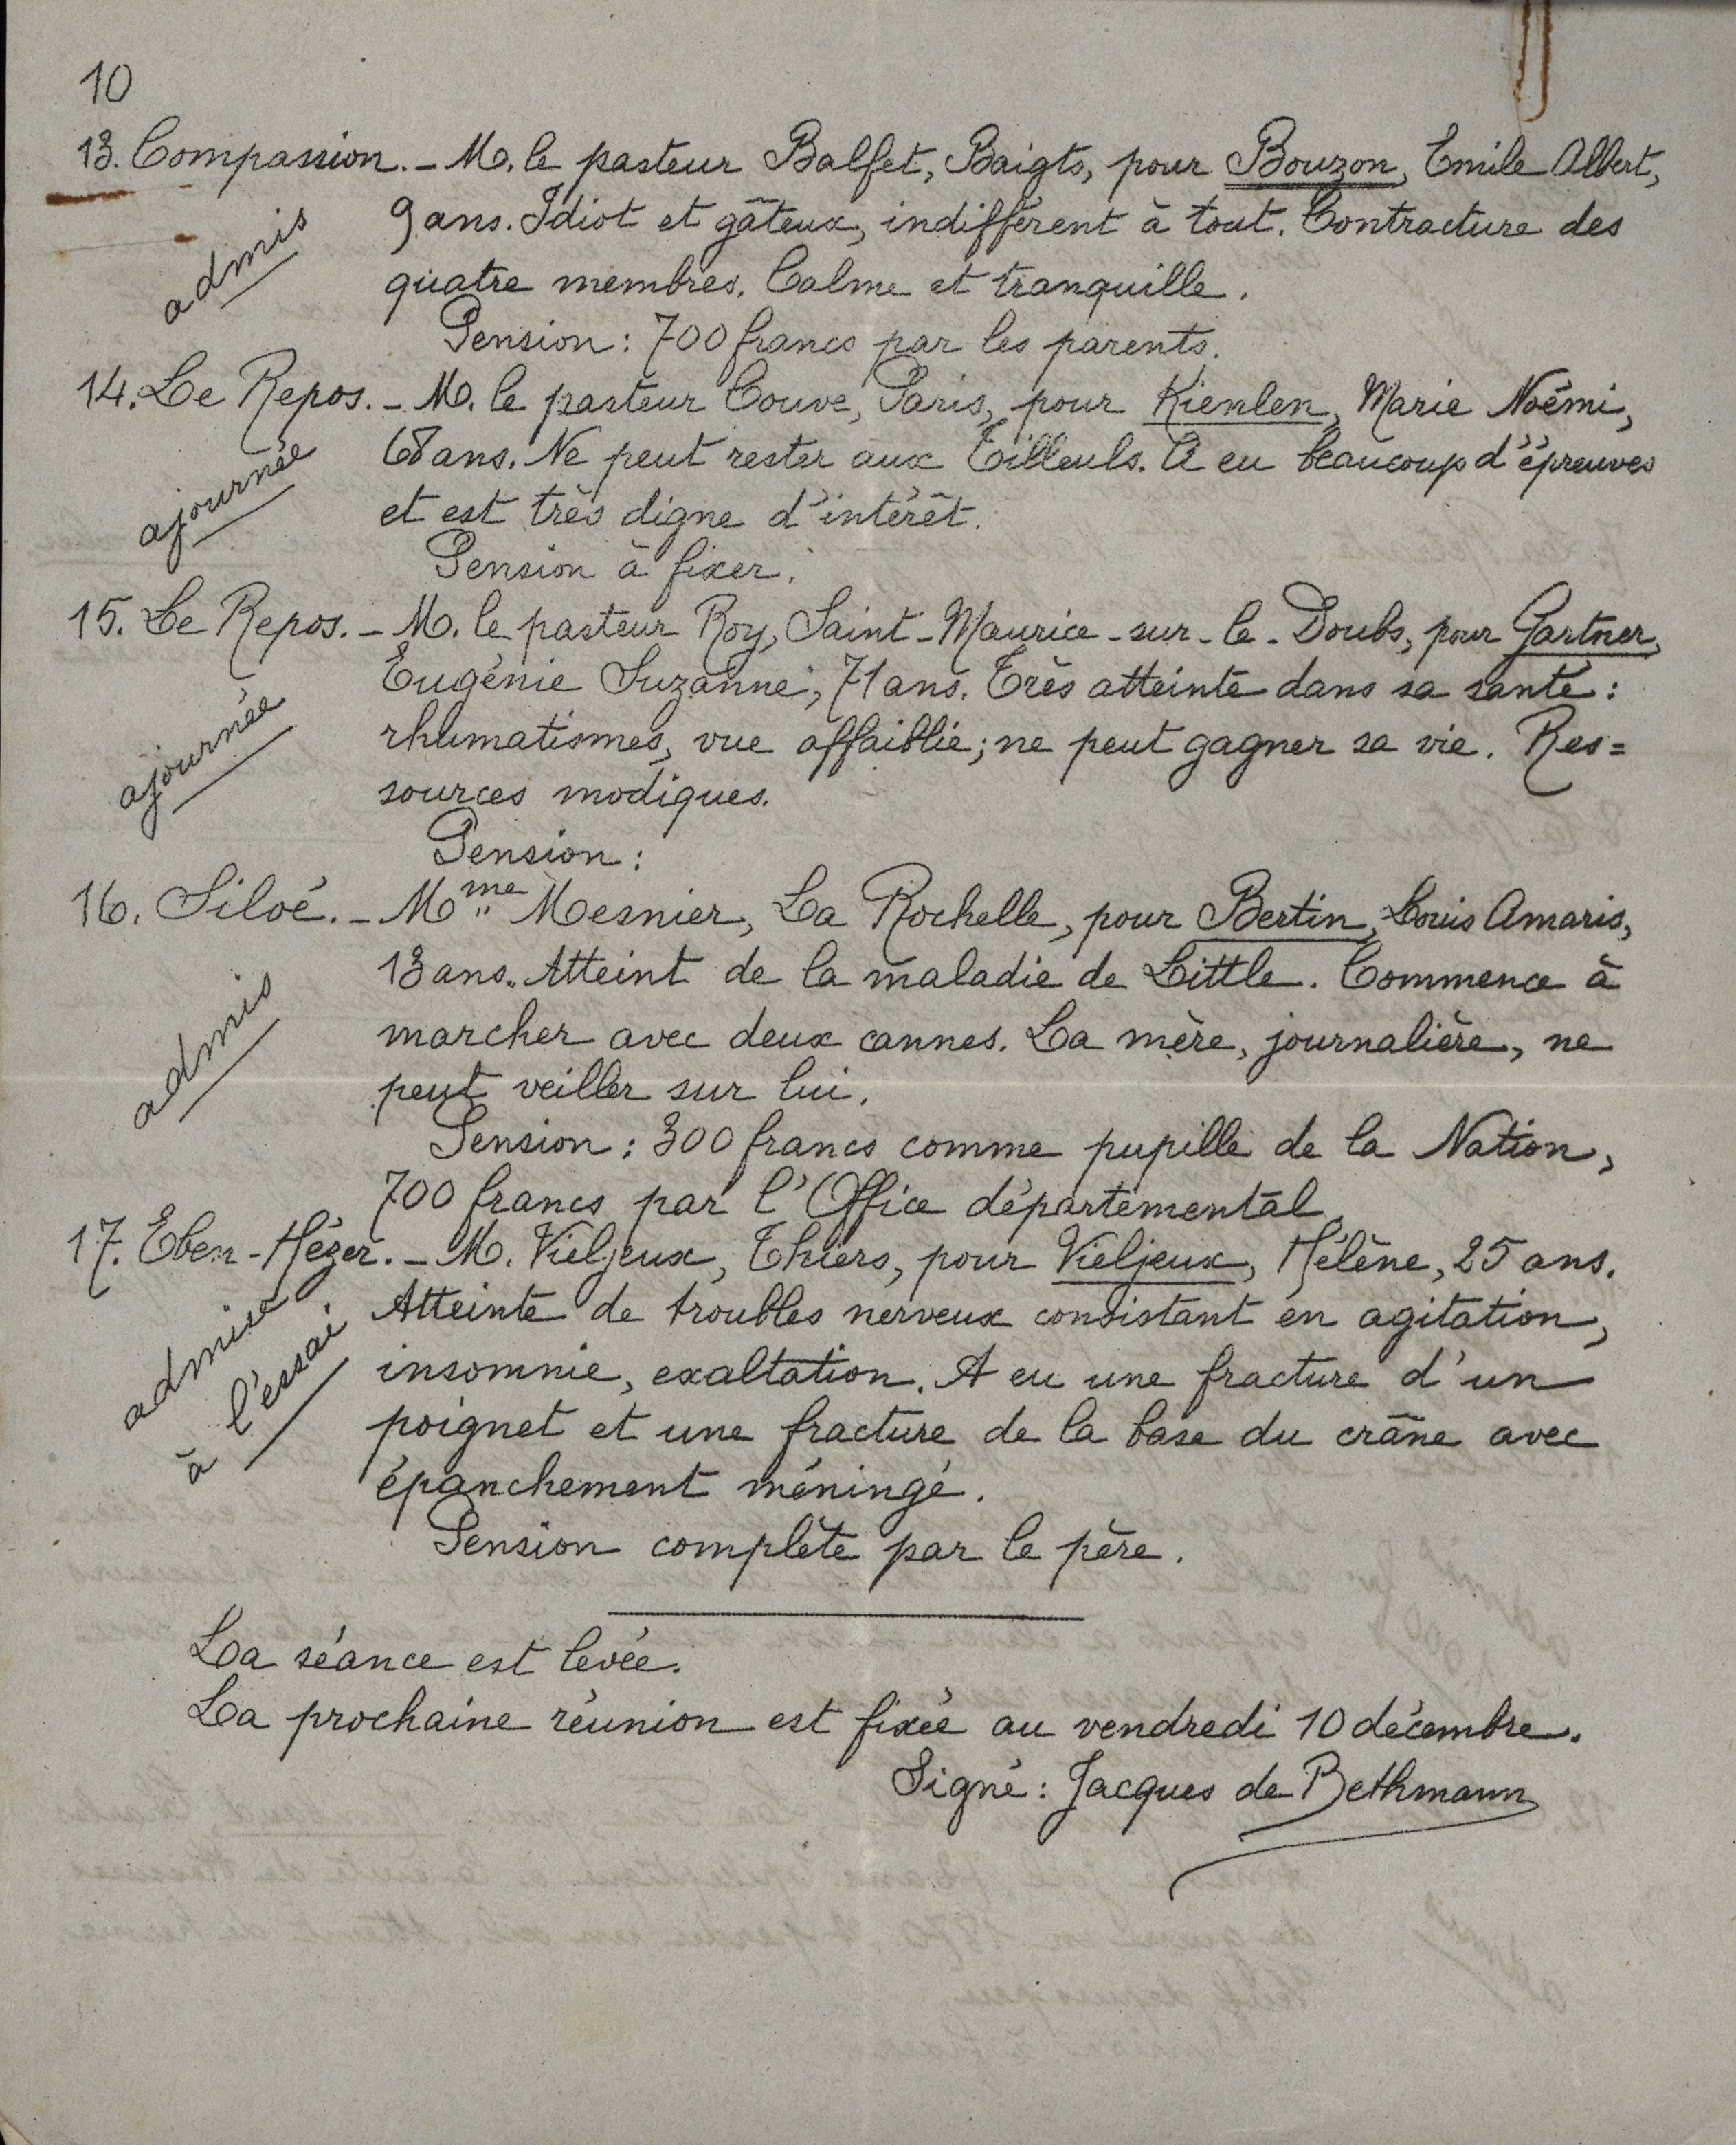 10
13. Compassion. - M. le pasteur Balfet, Baigts, pour Bouzon, Emile Albert,
admis
9 ans. Idiot et gâteux, indifférent à tout. Contracture des
quatre membres. Calme et tranquille.
Pension : 700 francs par les parents.
14. Le Repos. - M. le pasteur Couve, Paris, pour Kienlen, Marie Noémi,
ajournée
68 ans. Ne peut rester aux Tilleuls. A eu beaucoup d'épreuves
et est très digne d'intérêt.
Pension à fixer.
15. Le Repos. - M. le pasteur Roy, Saint-Maurice-sur-le-Doubs, pour Gartner,
ajournée
Eugénie Suzanne, 71 ans. Très atteinte dans sa santé :
rhumatismes, vue affaiblie ; ne peut gagner sa vie. Res=
sources modiques.
Pension :
16. Siloé. - Mme Mesnier, La Rochelle, pour Bertin, Louis Amaris,
admis
13 ans. Atteint de la maladie de Little. Commence à
marcher avec deux cannes. La mère, journalière, ne
peut veiller sur lui.
Pension : 300 francs comme pupille de la Nation,
700 francs par l'Office départemental.
17. Eben-Hézer. - M. Vieljeux, Thiers, pour Vieljeux, Hélène, 25 ans.
admise
à l'essai
Atteinte de troubles nerveux consistant en agitation,
insomnie, exaltation. A eu une fracture d'un
poignet et une fracture de la base du crâne avec
épanchement méningé.
Pension complète par le père.
La séance est levée.
La prochaine réunion est fixée au vendredi 10 décembre.
Signé : Jacques de Bethmann